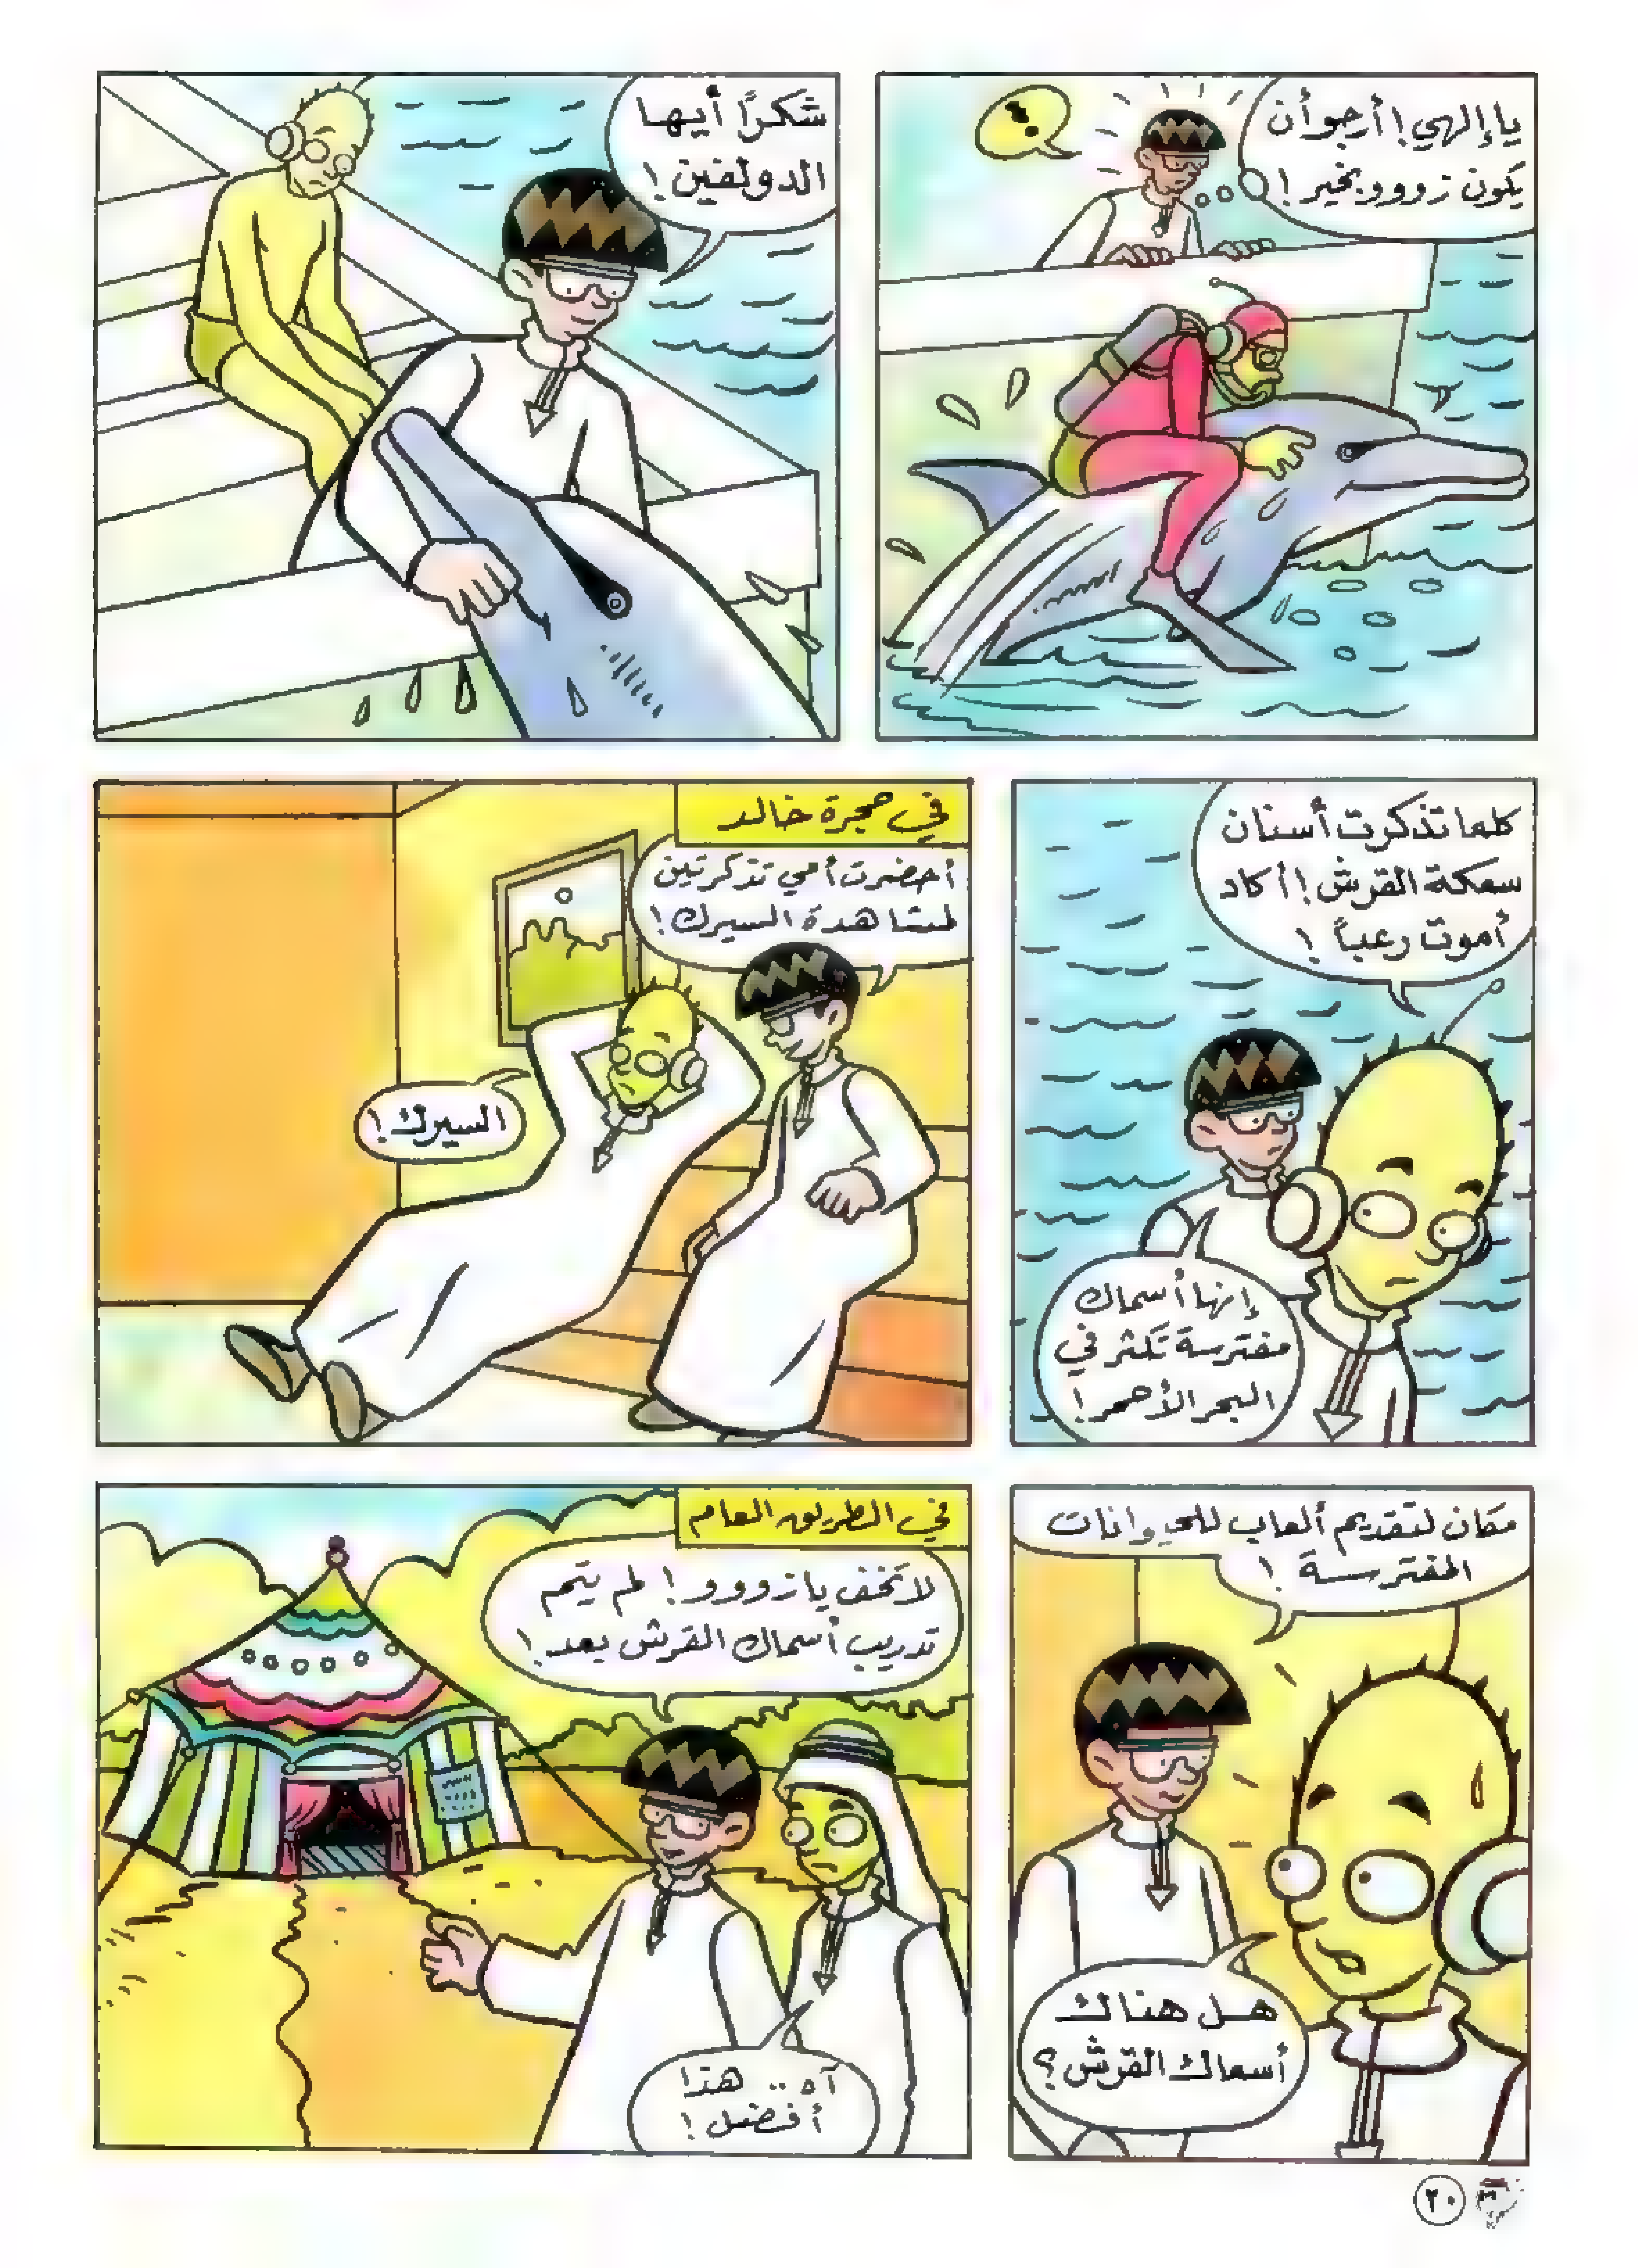 يا إلهي! أرجو أن
يكون زووو بخير!
!
شكرًا أيها
الدولفين!
كلما تذكرت أسنان
سمكة القرش! أكاد
أموت رعباً!
إنها أسماك
مفترسة تكثر في
البحر الأحمر!
في حجرة خالد
أحضرت أمي تذكرتين
لمشاهدة السيرك!
السيرك!
مكان لتقديم ألعاب للحيوانات
المفترسة!
هل هناك
أسماك القرش؟
في الطريق العام
لا تخف يا زووو! لم يتم
تدريب أسماك القرش بعد!
آه .. هذا
أفضل!
٢٠